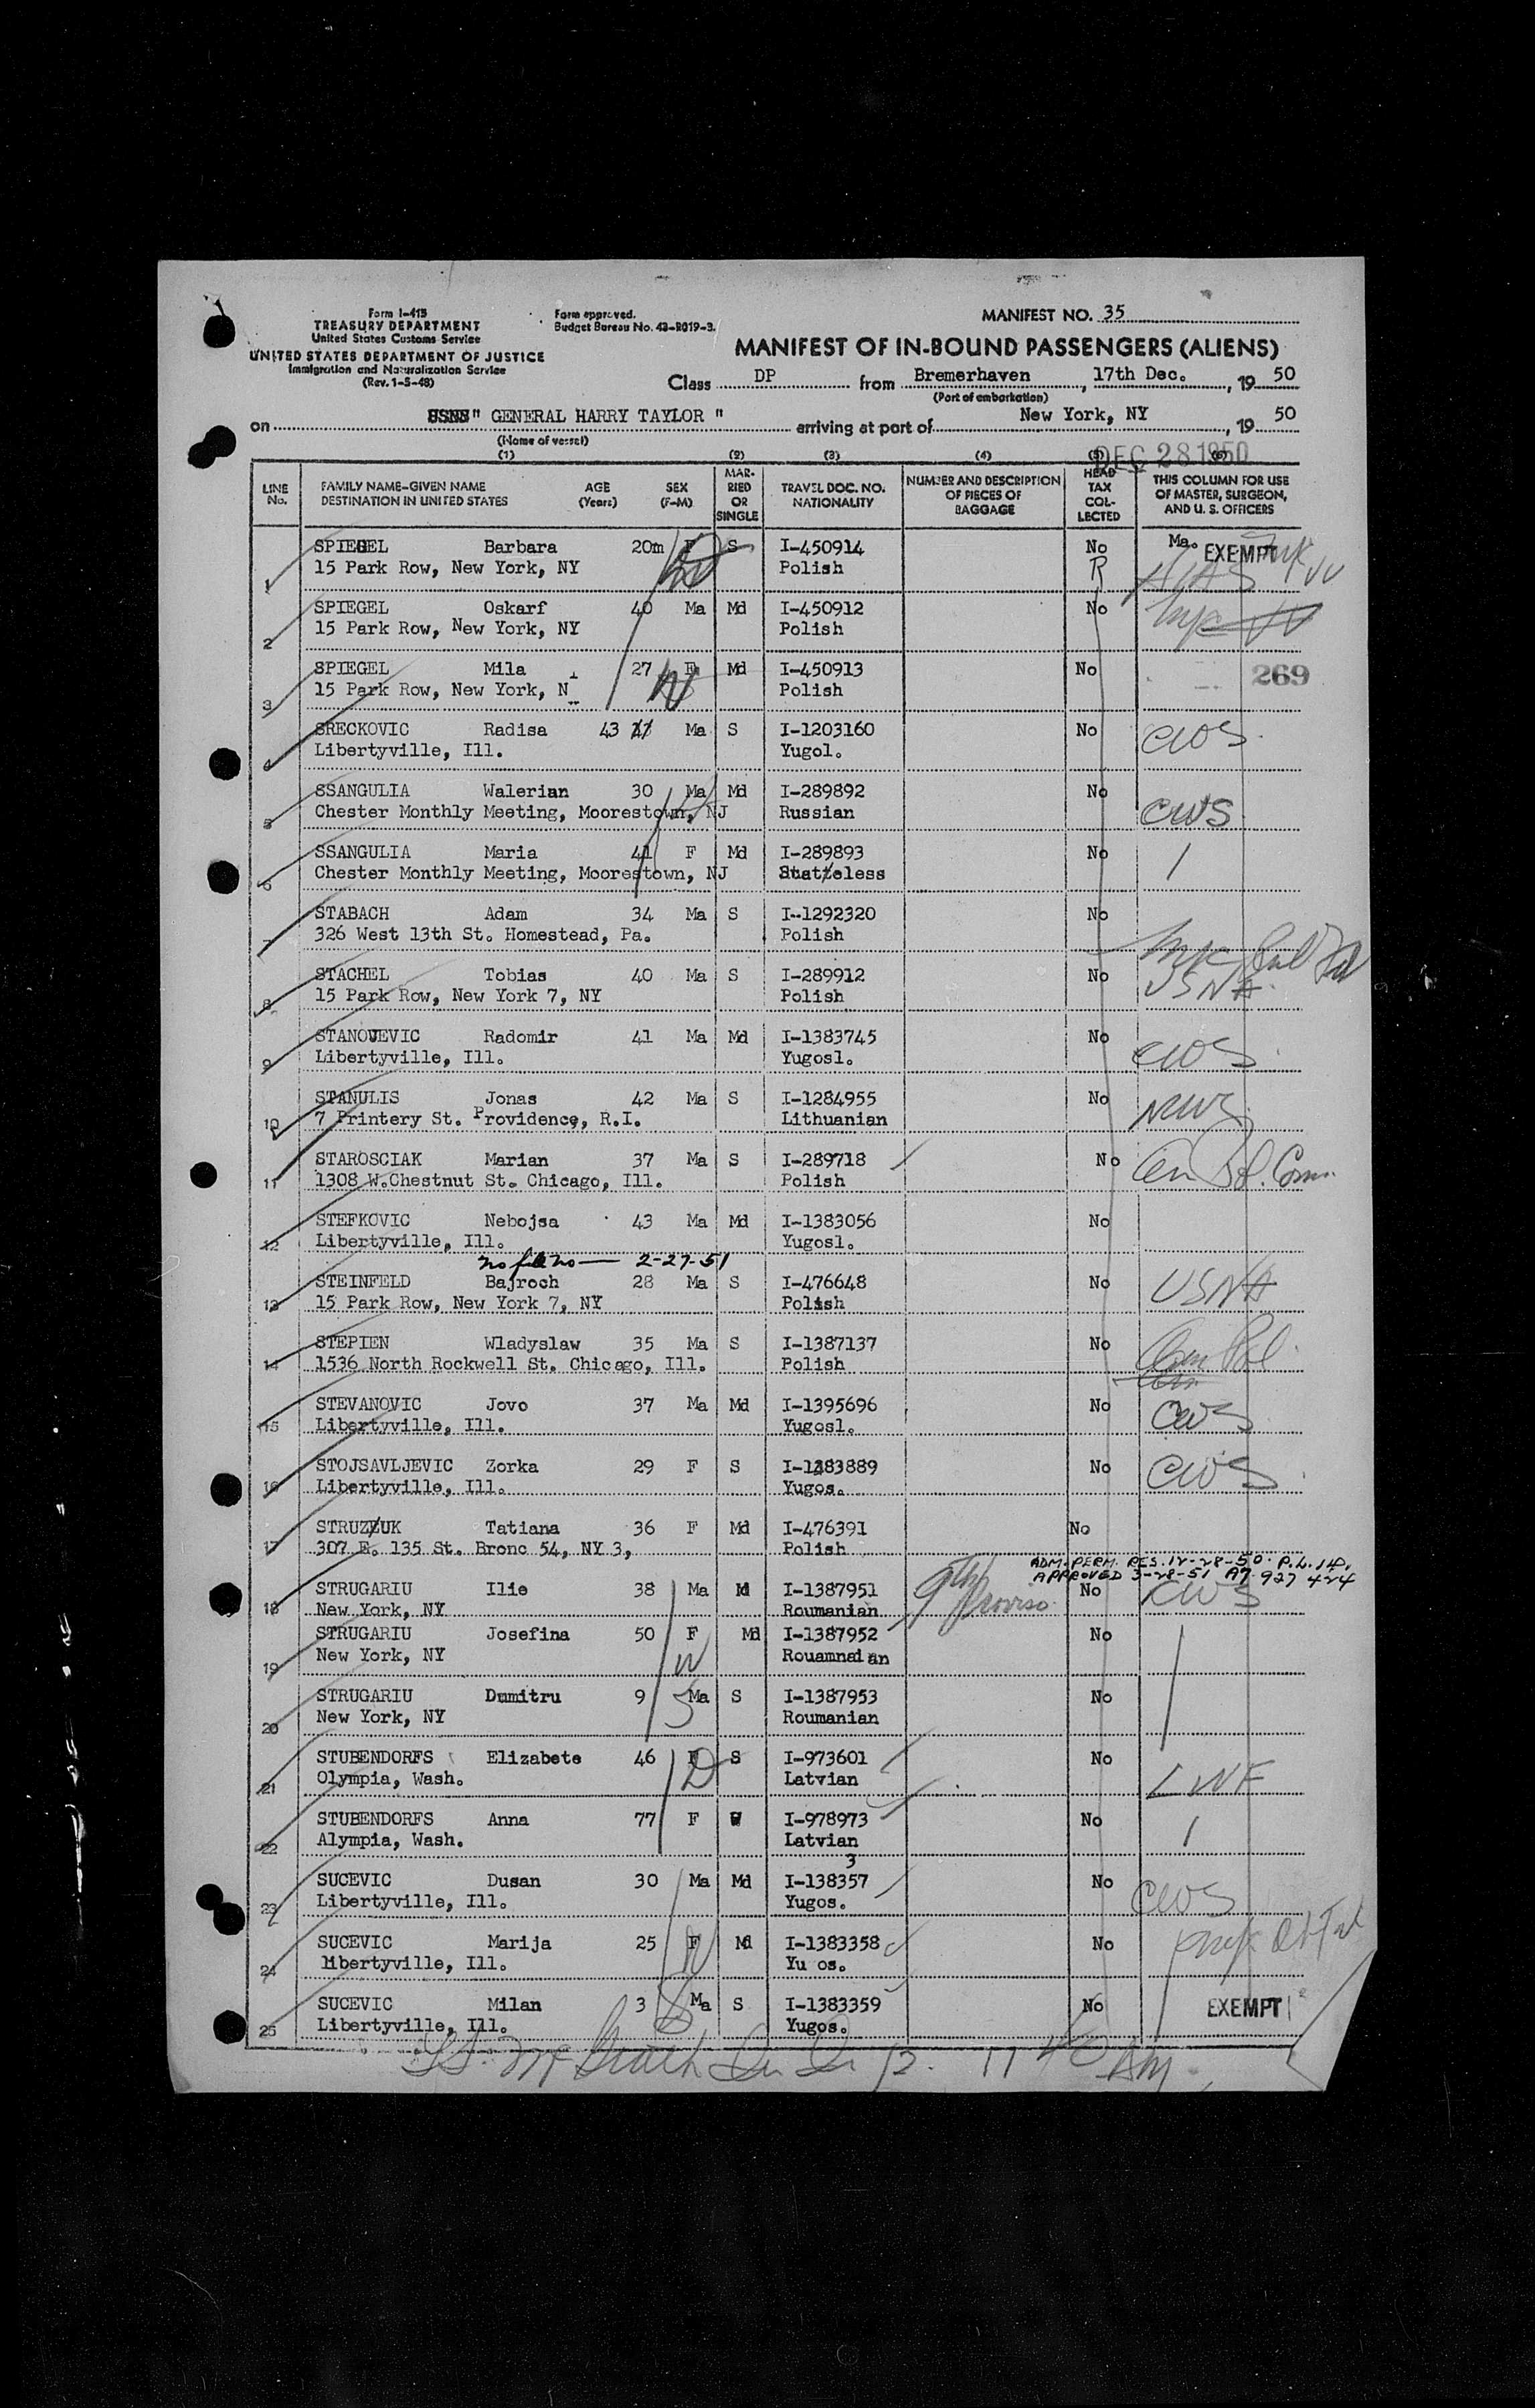 Form I-415
TREASURY DEPARTMENT
United States Customs Service
UNITED STATES DEPARTMENT OF JUSTICE
Immigration and Naturalization Service
(Rev. 1-5-48)
Form approved.
Budget Bureau No. 43-R019-3.
MANIFEST NO. 35
MANIFEST OF IN-BOUND PASSENGERS (ALIENS)
Class DP from Bremerhaven, 17th Dec., 19 50
(Port of embarkation)
on USNS " GENERAL HARRY TAYLOR " arriving at port of New York, NY, 19 50
(Name of vessel)
DEC 28 1950
(1) (2) (3) (4) (5) (6)
LINE No. FAMILY NAME-GIVEN NAME DESTINATION IN UNITED STATES AGE (Years) SEX (F-M) MARRIED OR SINGLE TRAVEL DOC. NO. NATIONALITY NUMBER AND DESCRIPTION OF PIECES OF BAGGAGE HEAD TAX COLLECTED THIS COLUMN FOR USE OF MASTER, SURGEON, AND U. S. OFFICERS
1 SPIEGEL Barbara 20m F S I-450914 No Ma. EXEMPT
15 Park Row, New York, NY Polish R HIAS
2 SPIEGEL Oskarf 40 Ma Md I-450912 No
15 Park Row, New York, NY Polish
3 SPIEGEL Mila 27 F Md I-450913 No 269
15 Park Row, New York, N W Polish
4 SRECKOVIC Radisa 43 Ma S I-1203160 No CWS
Libertyville, Ill. Yugol.
5 SSANGULIA Walerian 30 Ma Md I-289892 No CWS
Chester Monthly Meeting, Moorestown, NJ Russian
6 SSANGULIA Maria 41 F Md I-289893 No
Chester Monthly Meeting, Moorestown, NJ Stateless
7 STABACH Adam 34 Ma S I-1292320 No
326 West 13th St. Homestead, Pa. Polish
8 STACHEL Tobias 40 Ma S I-289912 No USNA
15 Park Row, New York 7, NY Polish
9 STANOJEVIC Radomir 41 Ma Md I-1383745 No CWS
Libertyville, Ill. Yugosl.
10 STANULIS Jonas 42 Ma S I-1284955 No
7 Printery St. Providence, R.I. Lithuanian
11 STAROSCIAK Marian 37 Ma S I-289718 No
1308 W.Chestnut St. Chicago, Ill. Polish
12 STEFKOVIC Nebojsa 43 Ma Md I-1383056 No
Libertyville, Ill. Yugosl.
no file no — 2-27-51
13 STEINFELD Bajroch 28 Ma S I-476648 No USNA
15 Park Row, New York 7, NY Polish
14 STEPIEN Wladyslaw 35 Ma S I-1387137 No
1536 North Rockwell St. Chicago, Ill. Polish
15 STEVANOVIC Jovo 37 Ma Md I-1395696 No CWS
Libertyville, Ill. Yugosl.
16 STOJSAVLJEVIC Zorka 29 F S I-1383889 No CWS
Libertyville, Ill. Yugos.
17 STRUZZUK Tatiana 36 F Md I-476391 No
307 E. 135 St. Bronc 54, NY 3, Polish
ADM. PERM. RES. 12-28-50. P.L. 
APPROVED 3-28-51 A7 927 424
18 STRUGARIU Ilie 38 Ma Md I-1387951 9th Proviso No CWS
New York, NY Roumanian
19 STRUGARIU Josefina 50 F Md I-1387952 No
New York, NY W Rouamnaian
20 STRUGARIU Dumitru 9 Ma S I-1387953 No
New York, NY S Roumanian
21 STUBENDORFS Elizabete 46 F S I-973601 No
Olympia, Wash. D Latvian LWF
22 STUBENDORFS Anna 77 F W I-978973 No
Alympia, Wash. Latvian
3
23 SUCEVIC Dusan 30 Ma Md I-138357 No CWS
Libertyville, Ill. Yugos.
24 SUCEVIC Marija 25 F Md I-1383358 No
libertyville, Ill. W Yu os.
25 SUCEVIC Milan 3 Ma S I-1383359 No EXEMPT
Libertyville, Ill. S Yugos.
12. 11 40 AM